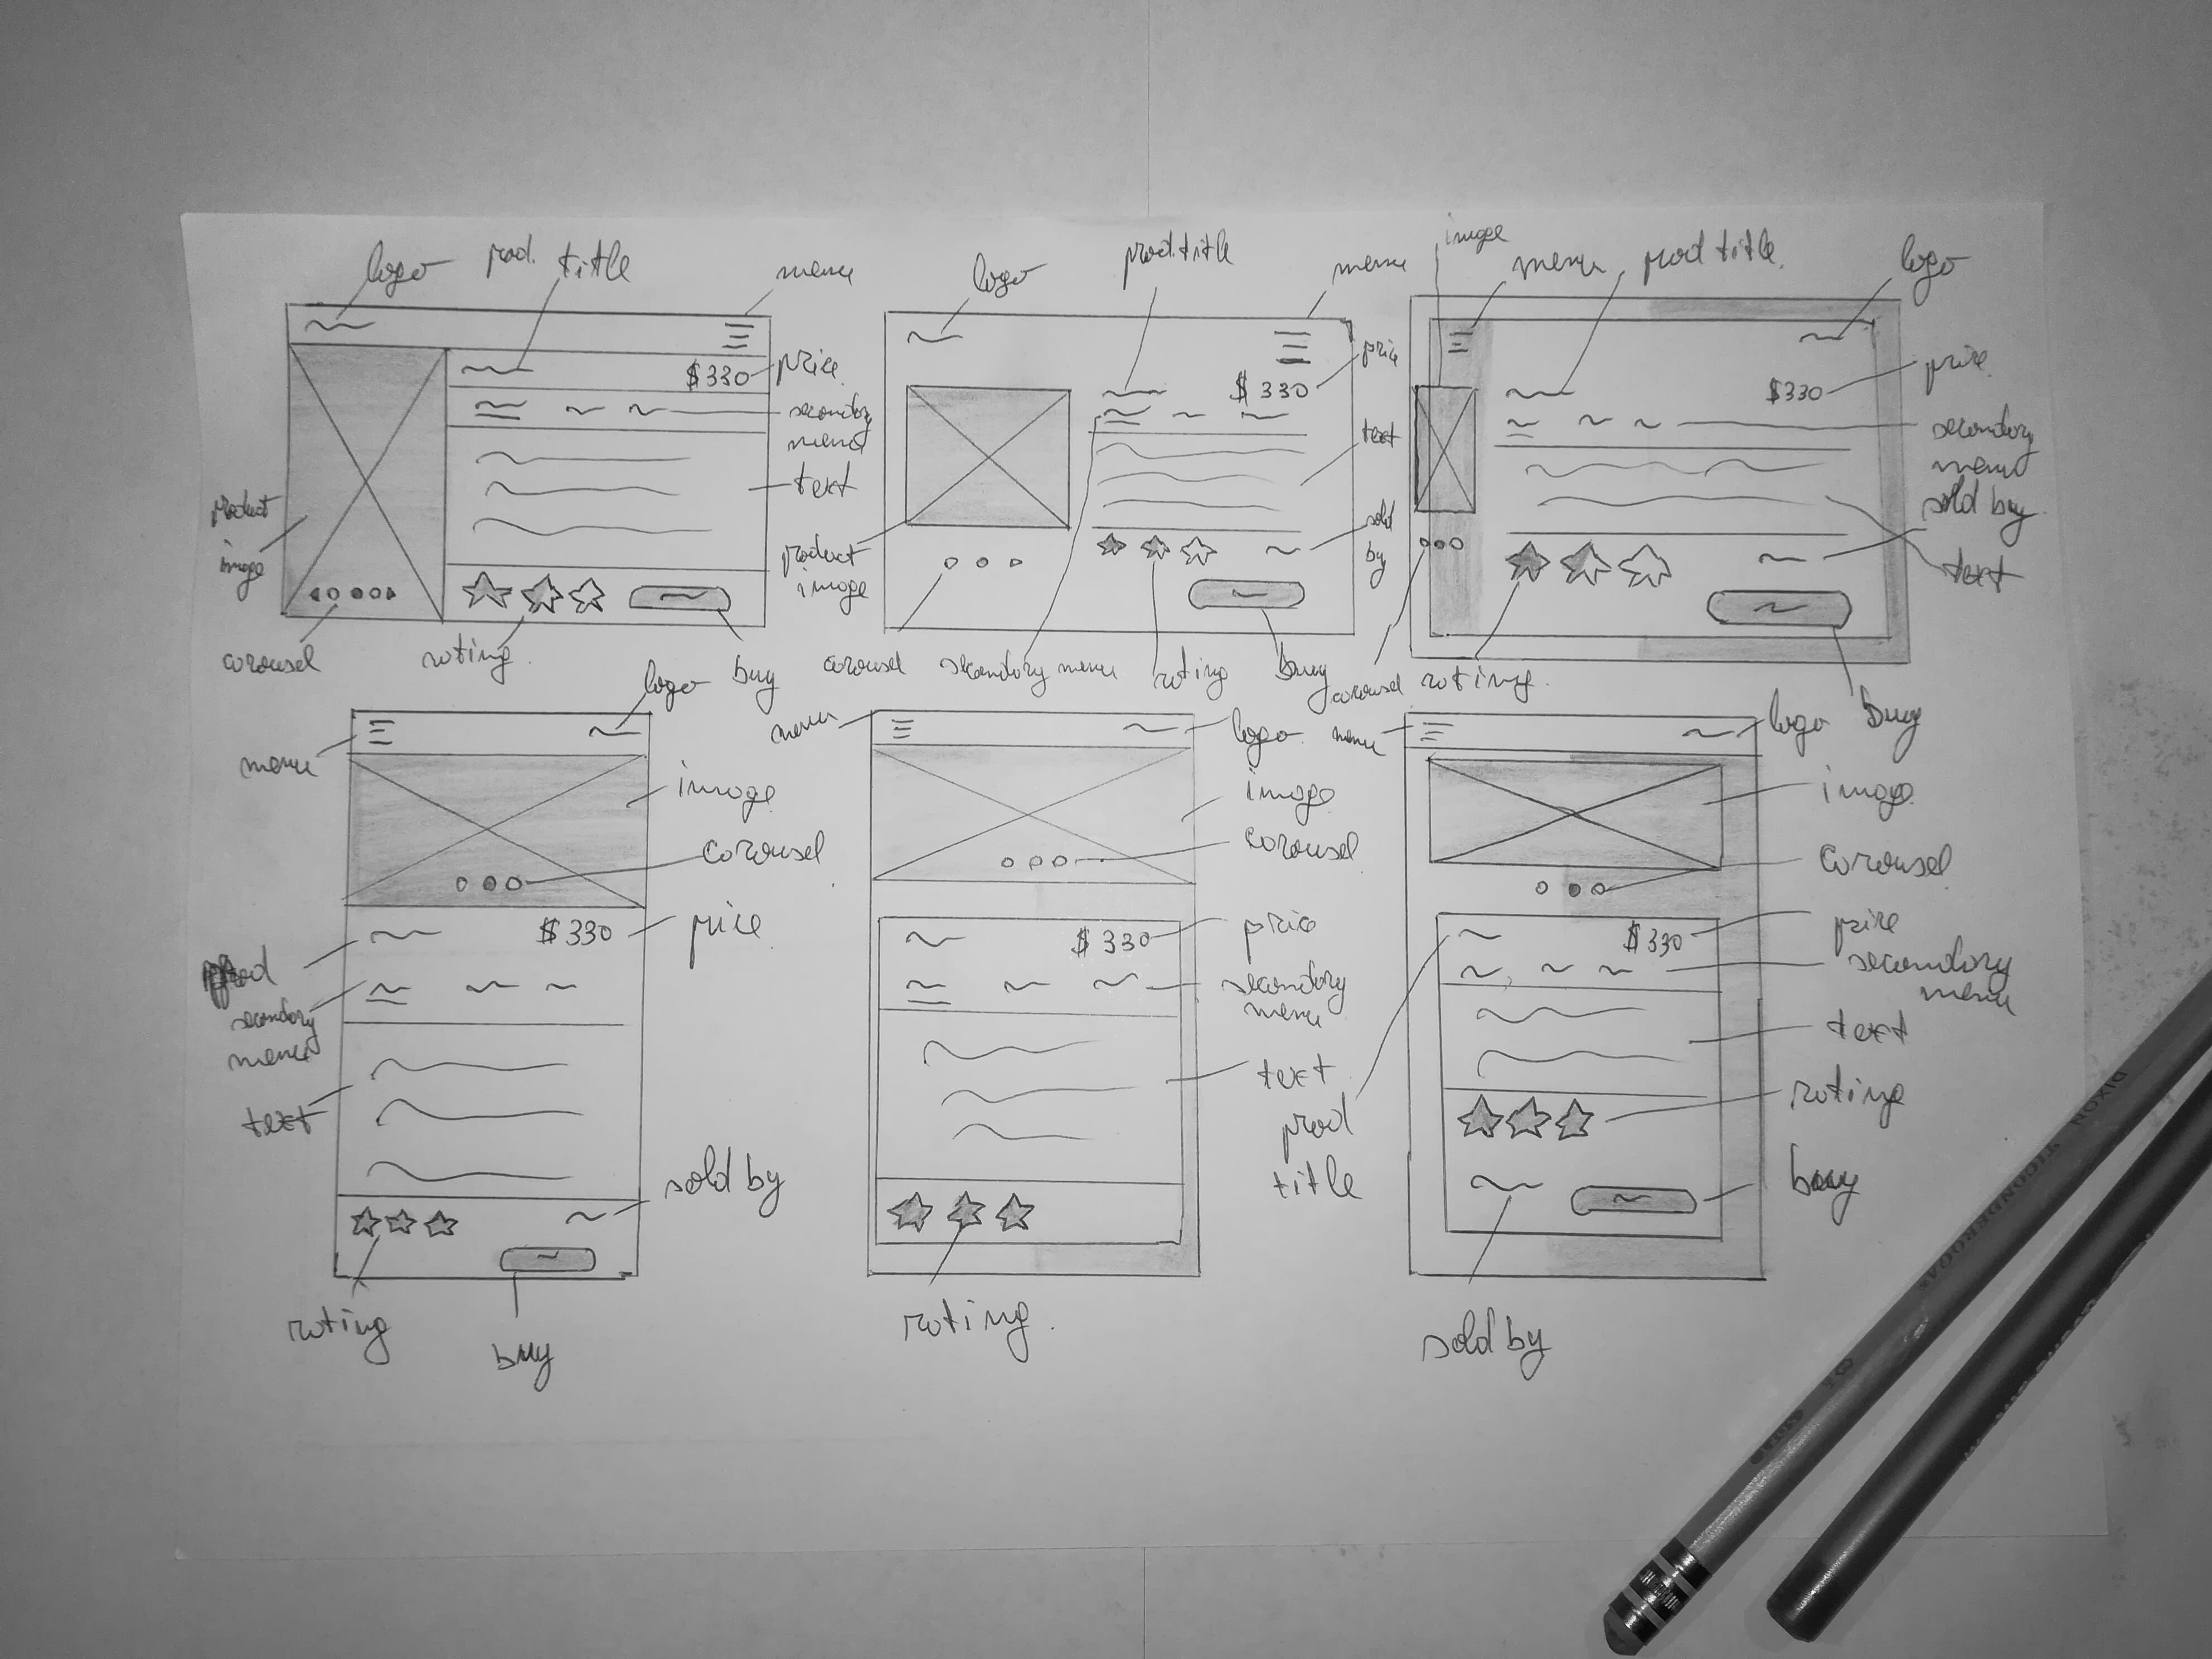 logo
prod. title
menu
$330
price
secondary
menu
text
product
image
carousel
rating
buy
logo
prod. title
menu
price
$330
text
sold
by
product
image
carousel
secondary menu
rating
buy
image
menu
prod title
logo
price
$330
secondary
menu
sold by
text
carousel
rating
buy
logo
menu
image
carousel
$330
price
prod
secondary
menu
text
sold by
rating
buy
menu
logo
image
carousel
$330
price
secondary
menu
text
rating
menu
logo
image
carousel
$330
price
secondary
menu
text
prod
title
rating
buy
sold by
DIXON
TICONDEROGA